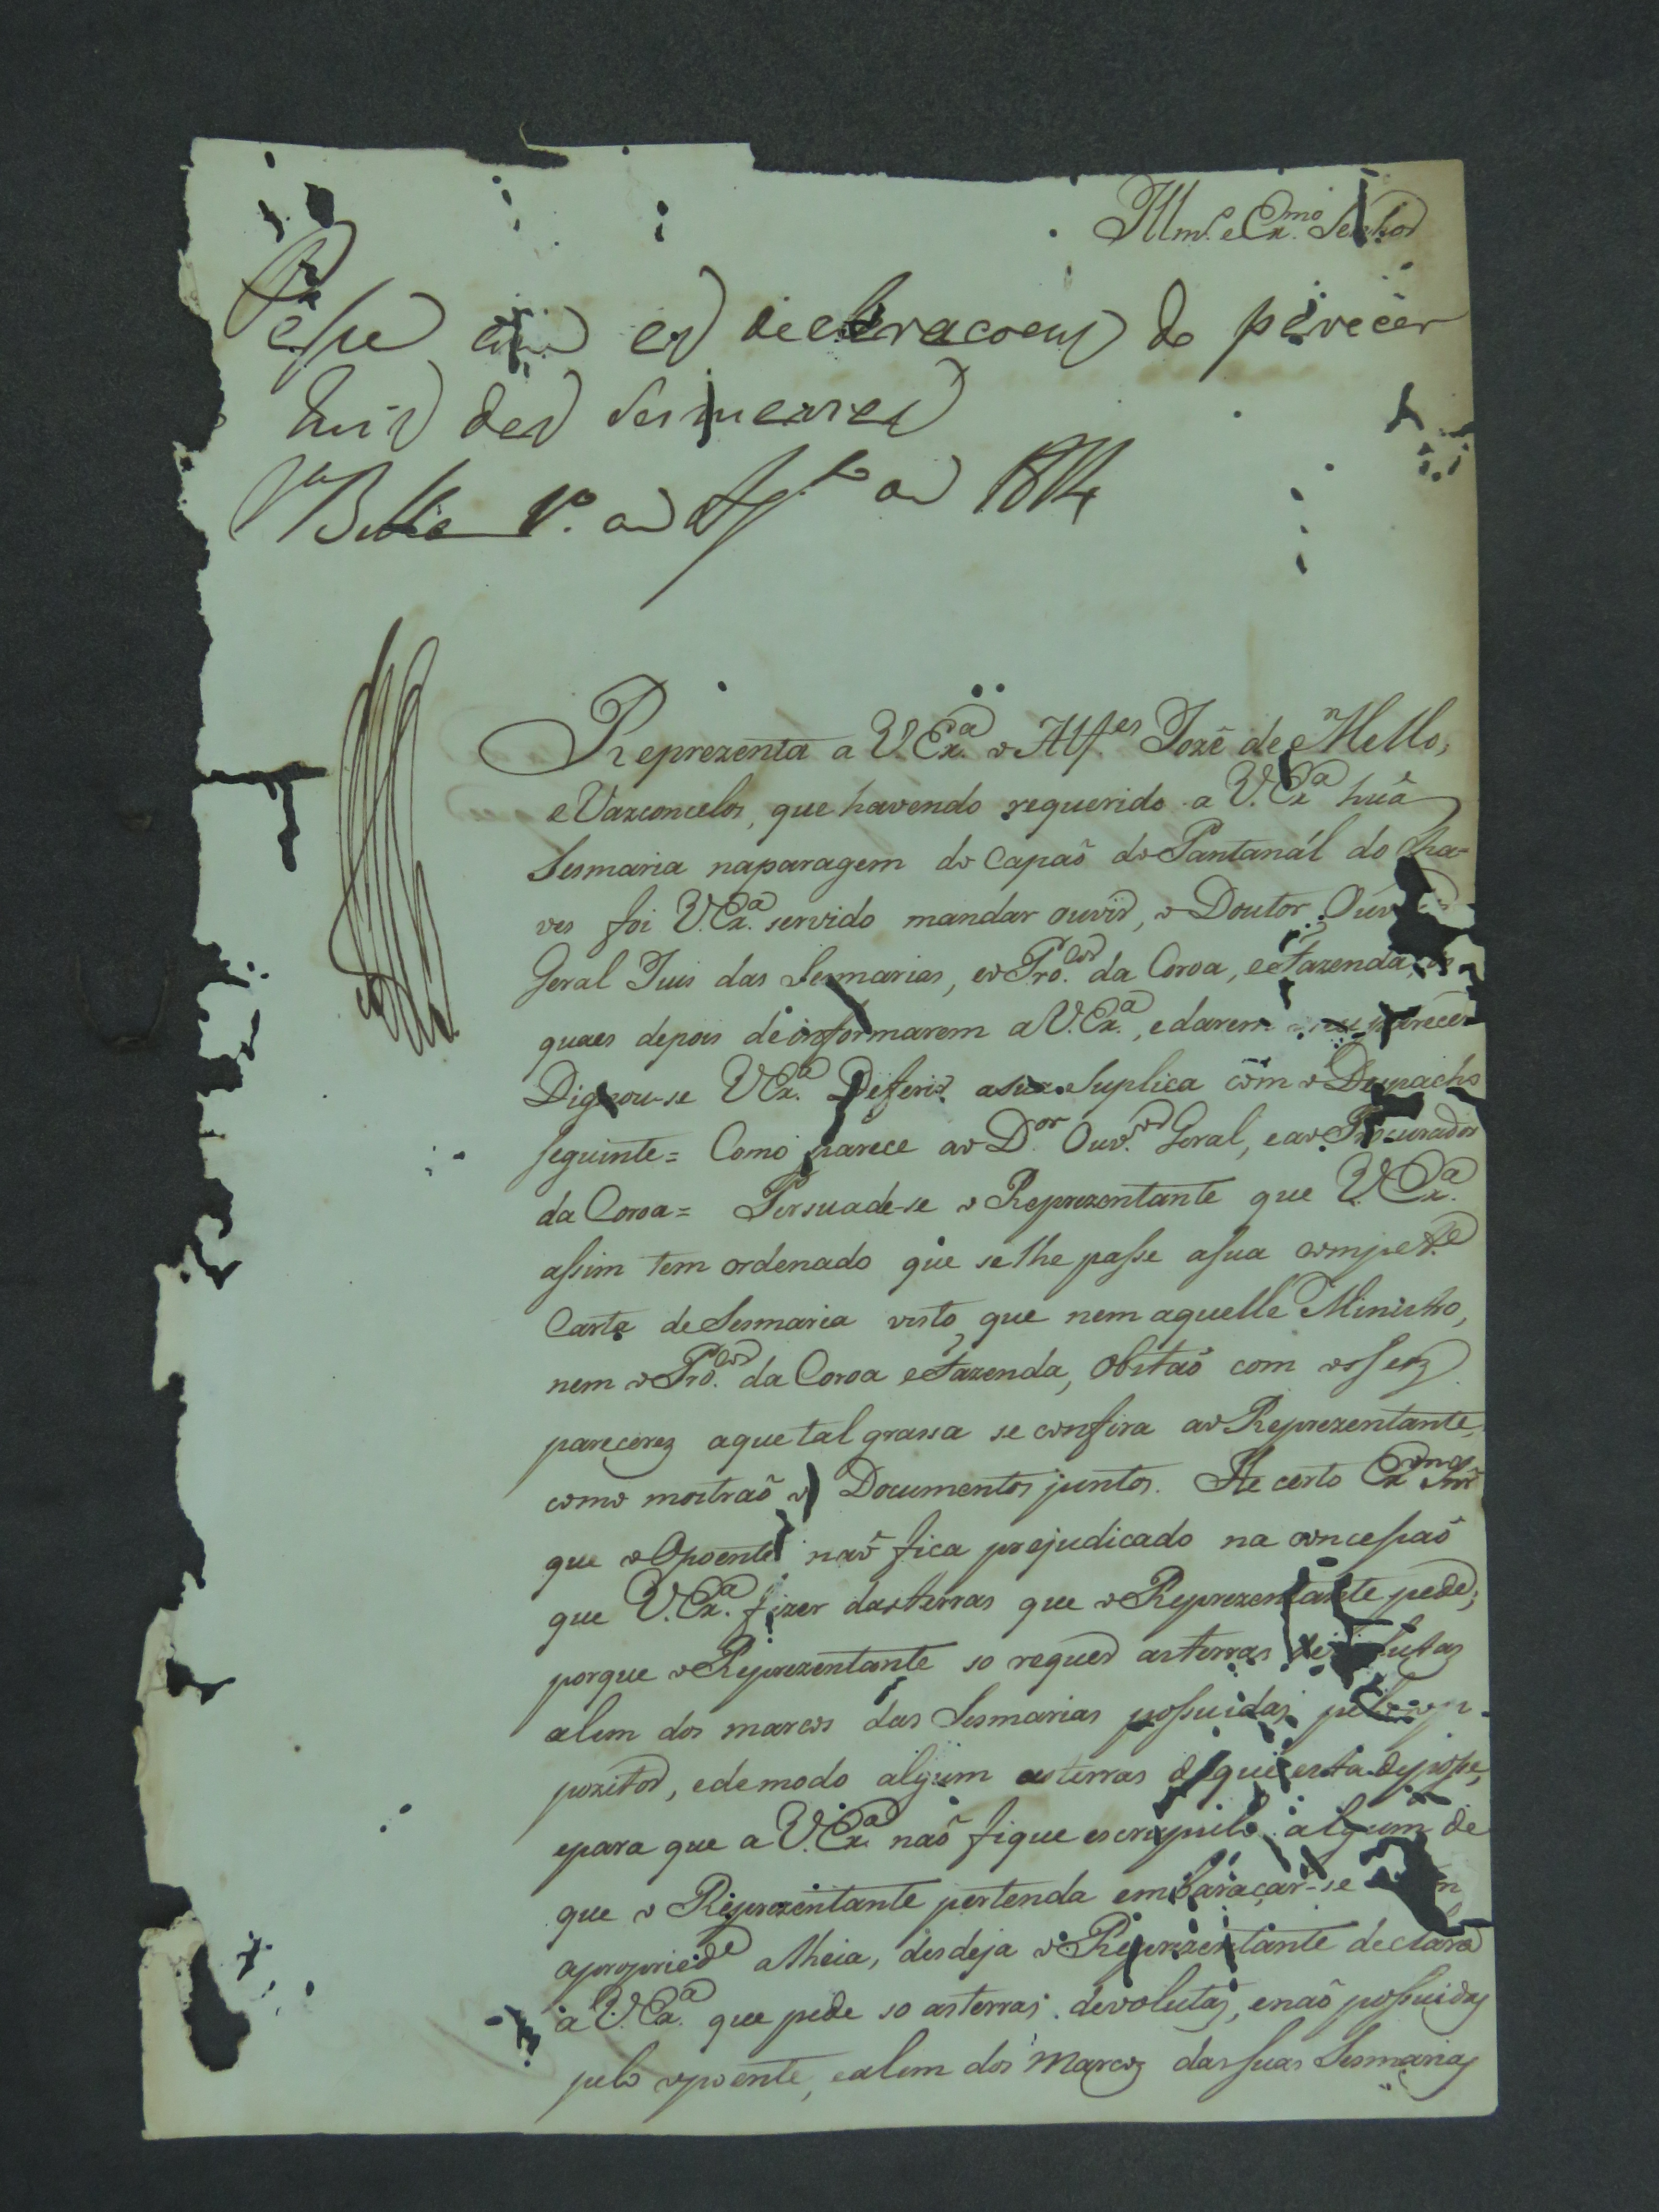 Illm.º e Ex.mo Senhor
Passe com as declaracoens do parecer
Juis das Sesmarias
V.a Bella 1º de Ag.to de 1814
Reprezenta a V. Ex.a o Alf.es Jozé de Mello,
e Vazconcelos, que havendo requerido a V. Ex.a huã
Sesmaria naparagem do Capaõ do Pantanál do Cha-
ves foi V. Ex.a servido mandar ouvir, o Doutor Ouvidor
Geral Juis das Sesmarias, eo Pro.dor da Coroa, eFazenda, os
quaes depois de informarem a V. Ex.a, edarem o seu parecer
Dignou-se V Ex.a Deferir asua Suplica com o Despacho
seguinte = Como parece ao D.or Ouv.or Geral, eao Procurador
da Coroa = Persuade-se o Reprezentante que V. Ex.a
assim tem ordenado que selhe passe asua compet.e
Carta de Sesmaria visto, que nem aquelle Ministro,
nem o Pro.dor da Coroa eFazenda, Obstaõ com os seus
pareceres aque tal grassa se confira ao Reprezentante,
como mostraõ os Documentos juntos. He certo Ex.mo Snr̃
que o Opoente naõ fica prejudicado na concessaõ
que V. Ex.a fizer das terras que o Reprezentante pede;
porque o Reprezentante so requer as terras devolutas
alem dos marcos das Sesmarias possuidas pelo op-
pozitor, edemodo algum as terras de que está de posse,
epara que a V. Ex.a naõ fique escrupulo algum de
que o Reprezentante pertenda embaraçar-se com
apropried.e alheia, desdeja o Reprezentante declara
á V. Ex.a que pede so as terras devolutas, enaõ possuidas
pelo opoente, ealem dos Marcos das suas Sesmarias